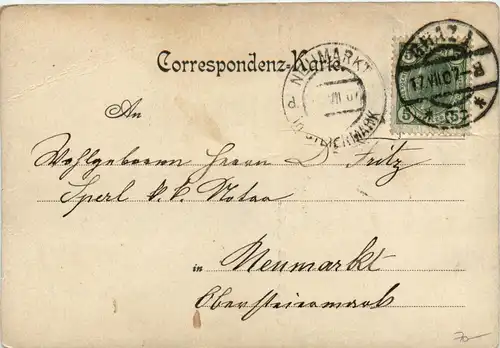 Correspondenz-Karte.
NEUMARKT
d VII 07
in STEIERMARK
GRAZ 1
17.VII.07
5 5
An
Wohlgeboren Herrn Dr Fritz
Sperl k.k. Notar
in Neumarkt
Obersteiermark